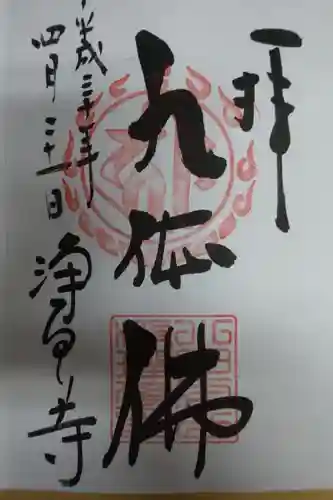 拝
九体佛
平成三十年
四月二十一日
浄るり寺